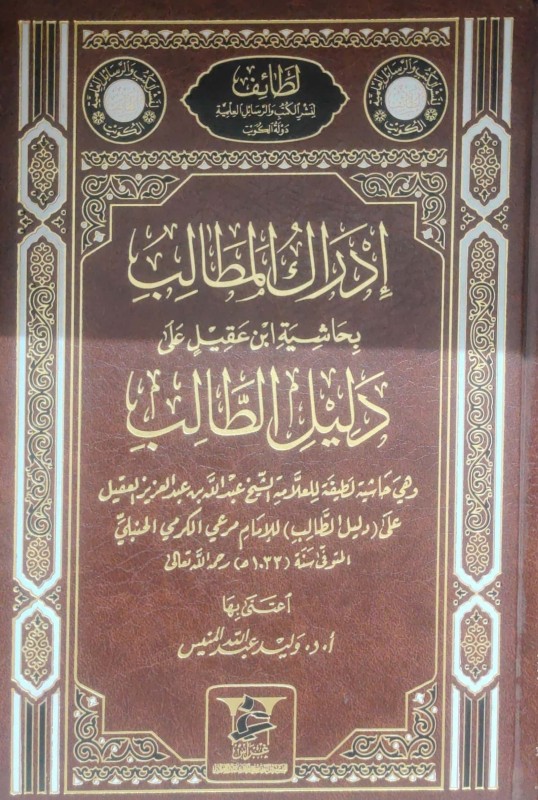 لطائف
لنشر الكتب والرسائل العلمية
دولة الكويت
لنشر الكتب والرسائل العلمية
الكويت
لنشر الكتب والرسائل العلمية
الكويت
إِدْرَاكُ المَطَالِبِ
بِحَاشِيَةِ ابْنِ عَقِيلٍ عَلَى
دَلِيلِ الطَّالِبِ
وهي حاشية لطيفة للعلامة الشيخ عبد الله بن عبد العزيز العقيل
على (دليل الطالب) للإمام مرعي الكرمي الحنبلي
المتوفى سنة (١٠٣٣ هـ) رحمه الله تعالى
اعتنى بها
أ. د. وليد عبد الله المنيس
غراس